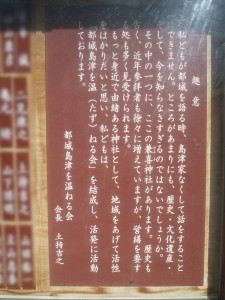 趣意
私どもが都城を語る時、島津家なくして話をすること
できません。ところがあまりにも、歴史・文化遺産・
して、今を知らなさすぎるのではないでしょうか。
その中の一つに、ここの兼喜神社があります。歴史も
古く、近年参拝者も徐々に増えていますが、営繕を要す
処も多く見受けられます。
もっと身近に由緒ある神社として、地域をあげて活性
をはかりたいと思い、私どもは、
都城島津を温（たず）ねる会」を結成し、活発に活動
しております。
都城島津を温ねる会
会長 土持吉之